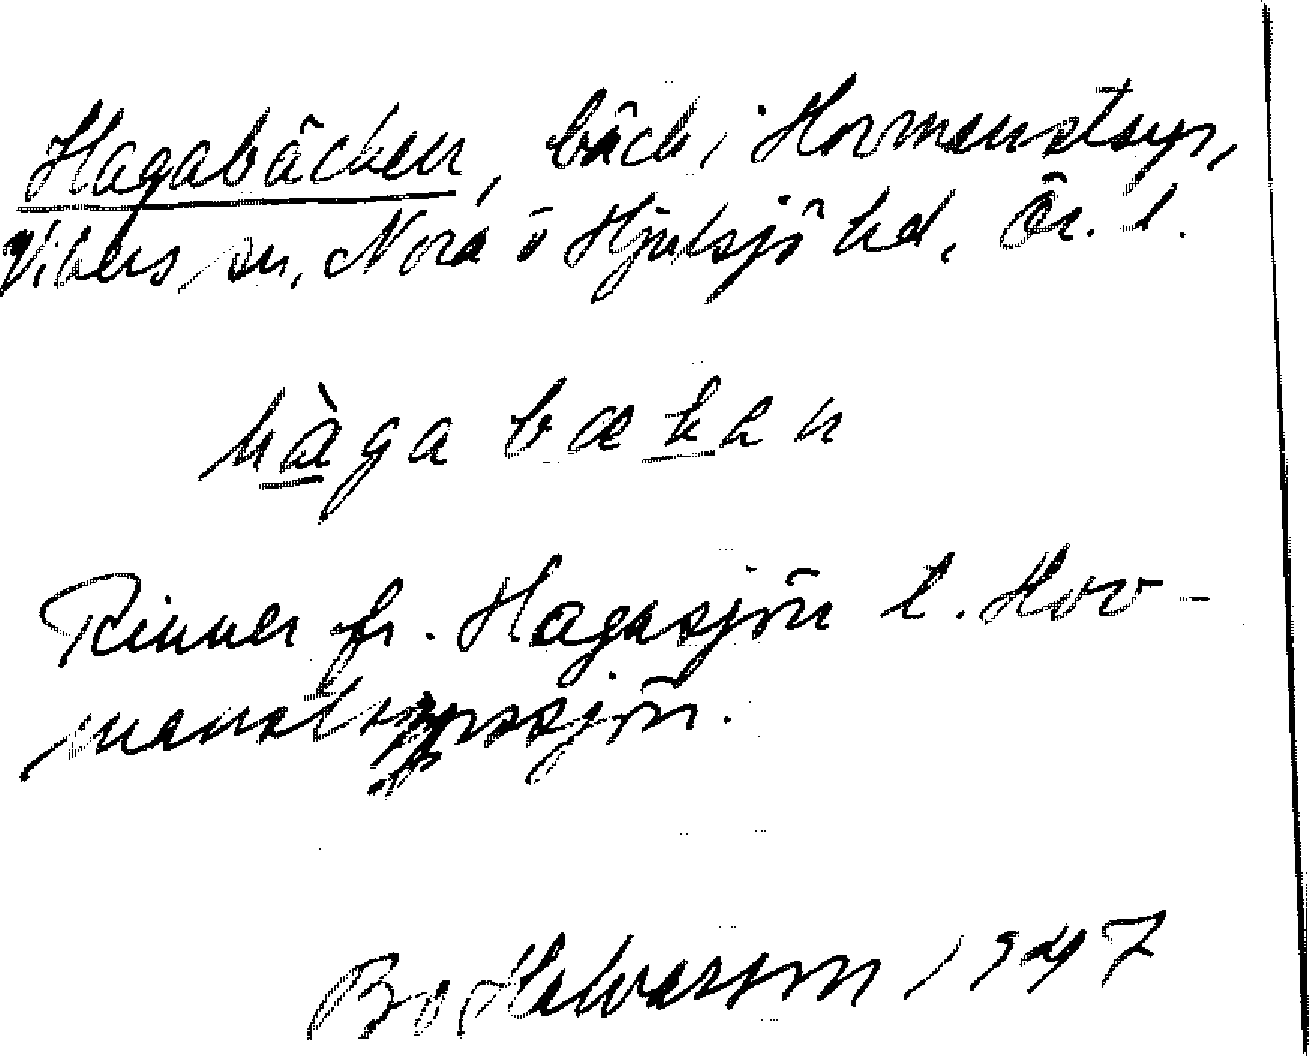 Hagabäcken, bäck i Hovmanstorp,
Vikers sn, Nora o Hjulsjö hd, Ör. l.
hàga bækan
Rinner fr. Hagasjön t. Hov-
manstorpssjön.
Bo Halvarson 1947